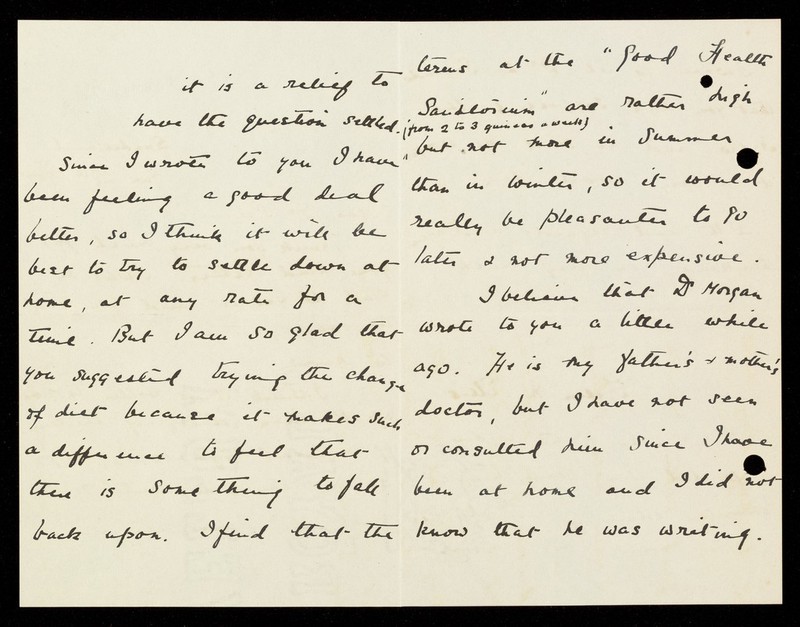 it is a relief to
have the question settled.
Since I wrote to you I have
been feeling a good deal
better, so I think it will be
best to try to settle down at
home, at any rate for a
time. But I am so glad that
you suggested trying the change
of diet because it makes such
a difference to feel that
there is something to fall
back upon. I find that the
terms at the "Good Health
Sanitorium" are rather high
(from 2 to 3 guineas a week)
but not more in Summer
than in winter, so it would
really be pleasanter to go
later & not more expensive.
I believe that Dr Morgan
wrote to you a little while
ago. He is my father's & mother's
doctor, but I have not seen
or consulted him since I have
been at home and I did not
know that he was writing.